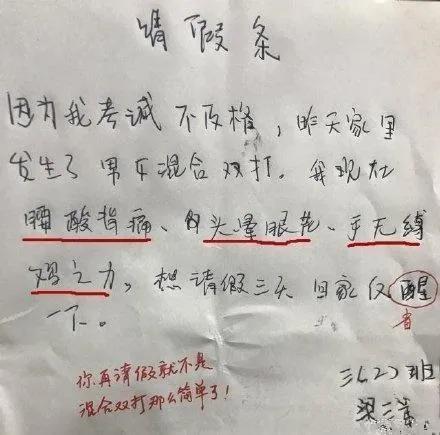 请假条
因为我考试不及格，昨天家里
发生了男女混合双打。我现在
腰酸背痛、头晕眼花、手无缚
鸡之力，想请假三天 回家反醒
省
一下。
你再请假就不是
混合双打那么简单了！
三(2)班
梁三